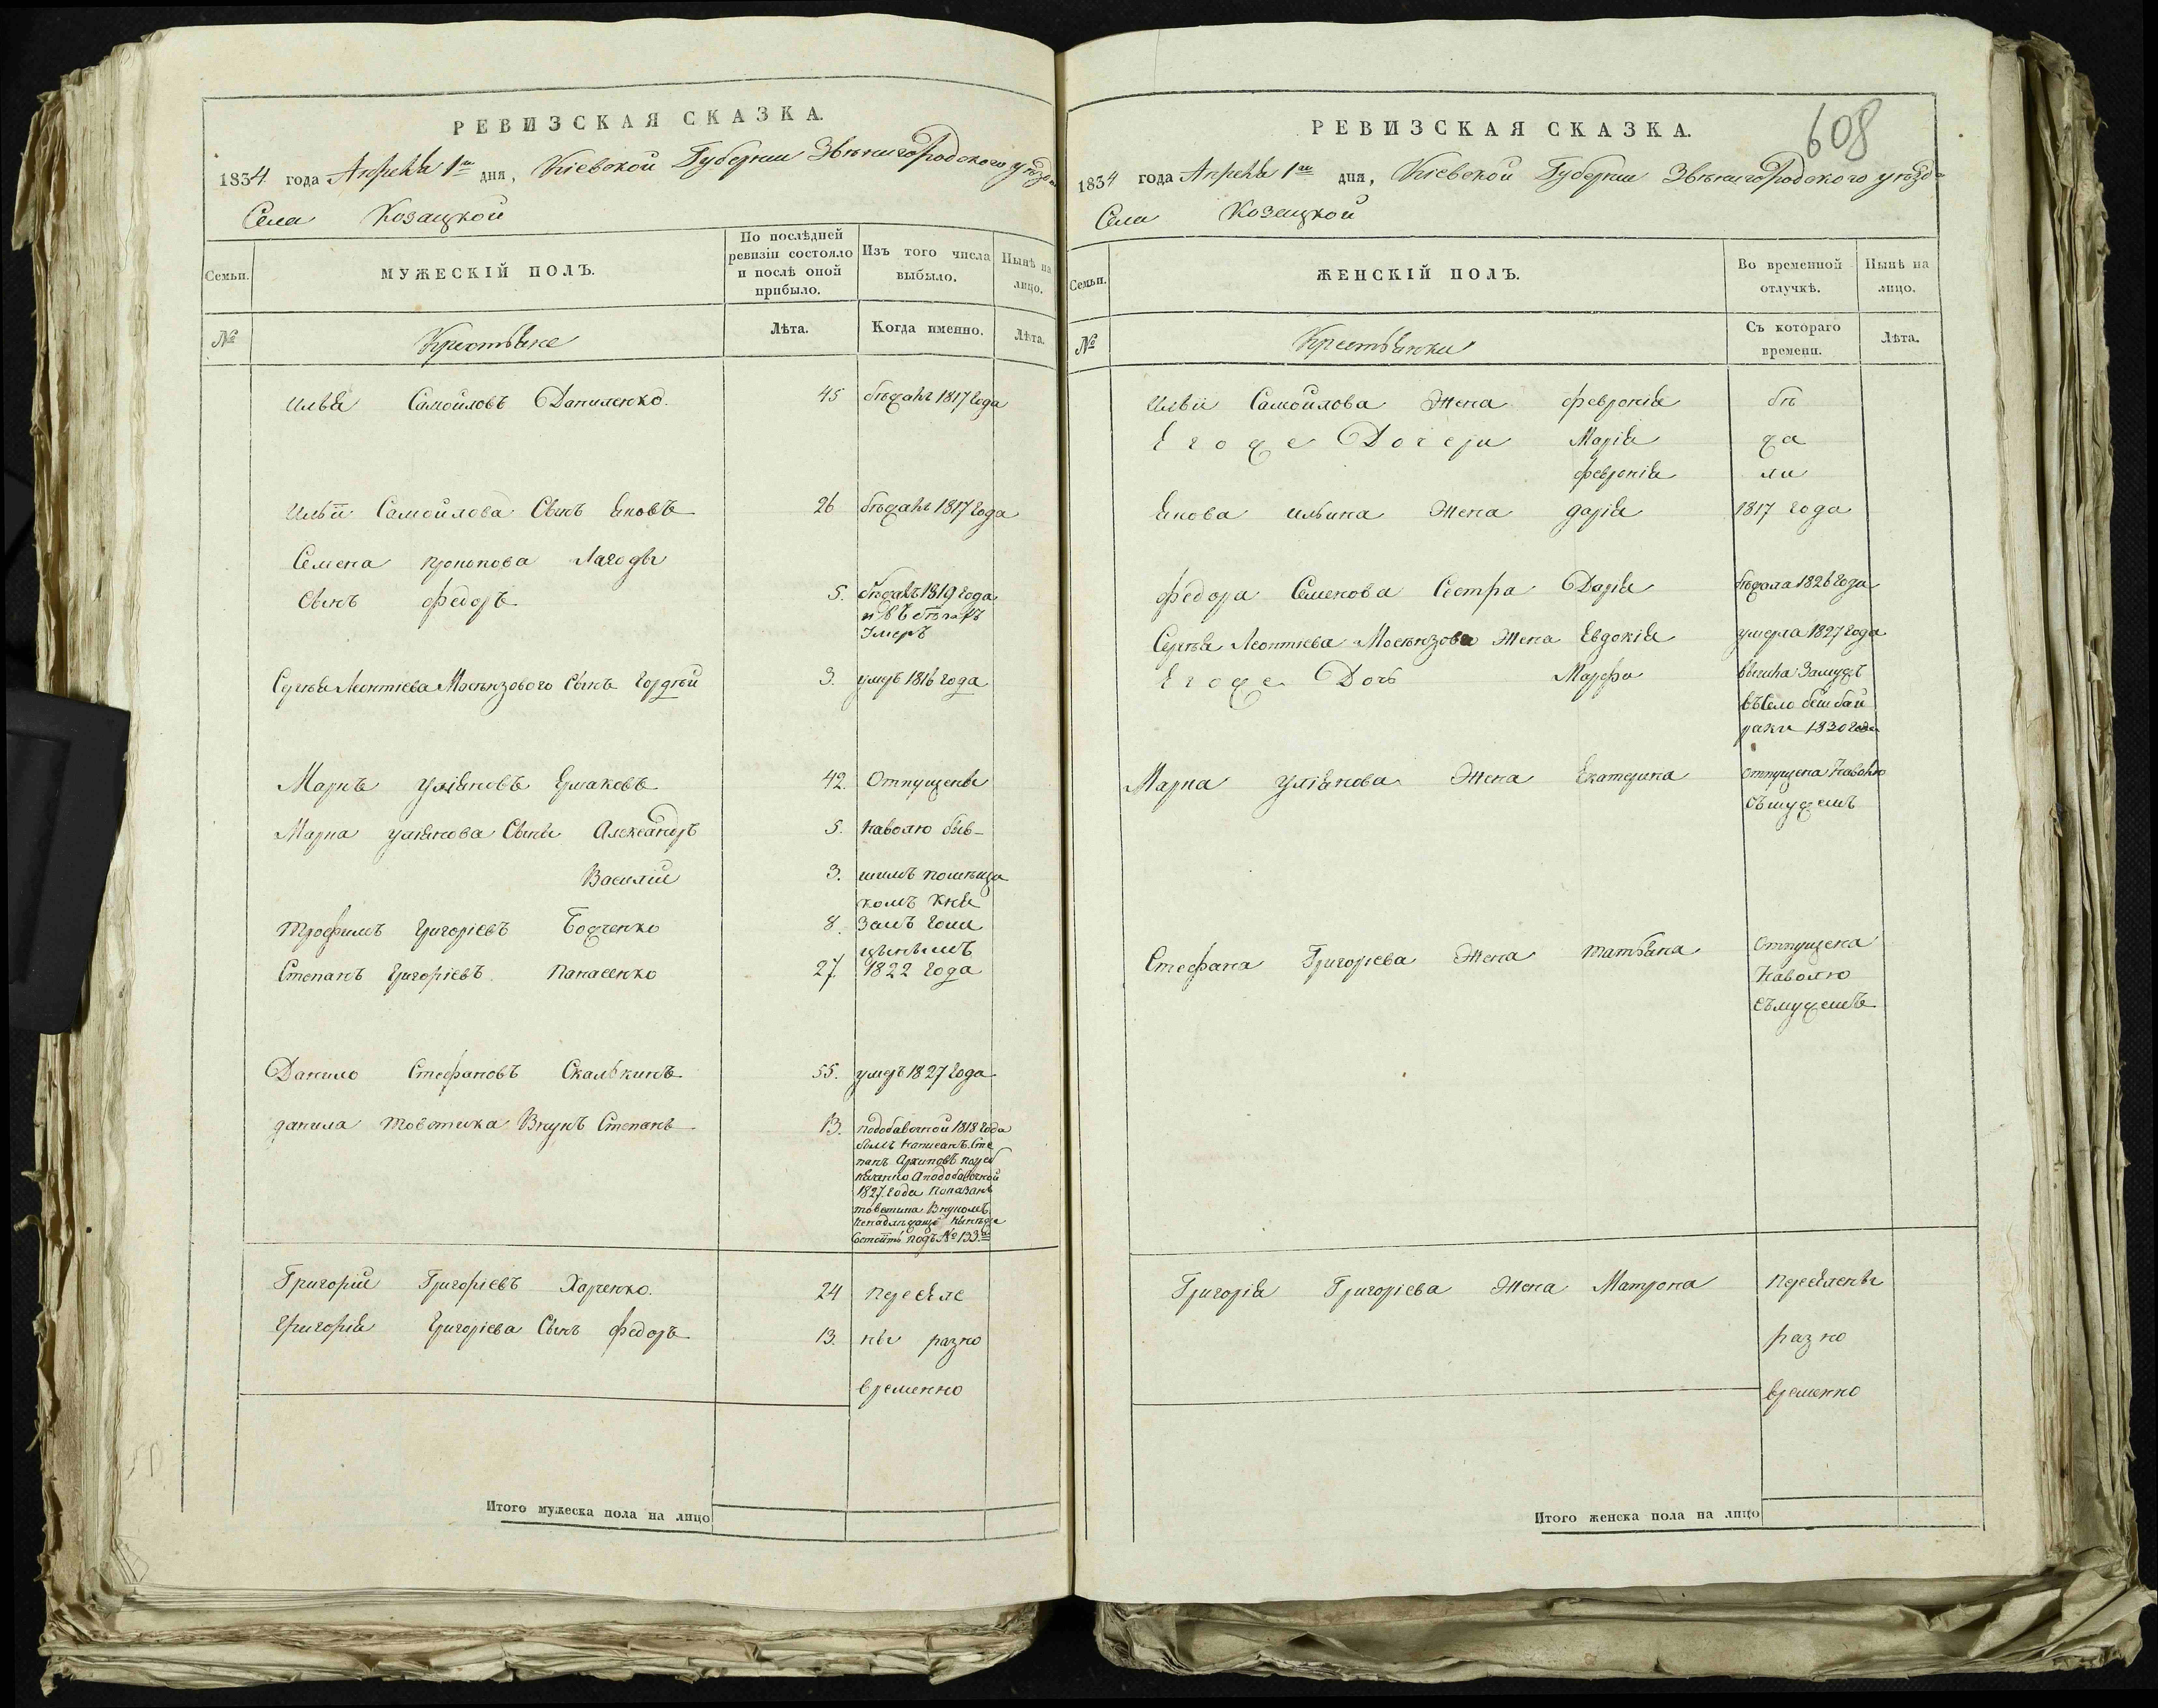 РЕВИЗСКАЯ СКАЗКА.
1834 года Апреля 1го дня, Кіевской Губерніи Звѣнигородского уѣзда
Села Козацкой
Семьи.
МУЖЕСКІЙ ПОЛЪ.
По послѣдней
ревизіи состояло
и послѣ оной
прибыло.
Изъ того числа
выбыло.
Нынѣ на
лицо.
№
Крестьяне
Лѣта.
Когда именно.
Лѣта.
Илья Самойловъ Даниленко. 45 бѣжалъ 1817 года
Ильи Самойлова Сынъ Яковъ 26 бѣжалъ 1817 года
Семена прокопова Лагоды
Сынъ федоръ 5. бѣжалъ 1819 года
и въ бѣгахъ
Умеръ
Сергѣя Леонтіева Мосѣнзового Сынъ Гордѣй 3. умеръ 1816 года
Маркъ уліяновъ Ермаковъ 42. Отпущены
Марка уліянова Сыны Александръ 5. наволю быв-
Василій 3. шимъ помѣщи
комъ Кня
Трофимъ Григоріевъ Бодченко 8. Земъ Голи
цынымъ
Степанъ Григоріевъ Панасенко 27. 1822 года
Данило Стефановъ Скалькинъ 55. умеръ 1827 года
данила товстика Внукъ Степанъ 13. подобавочной 1818 года
Степанъ
1827 года Показанъ
товстика Внукомъ
Состоитъ подъ № 133м
Григорій Григоріевъ Харченко. 24 переселе
Григорія Григоріева Сынъ федоръ 13. ны разно
временно
Итого мужеска пола на лицо
608
РЕВИЗСКАЯ СКАЗКА.
1834 года Апреля 1го дня, Кіевской Губерніи Звѣнигородского уѣзда
Села Козацкой
Семьи.
ЖЕНСКІЙ ПОЛЪ.
Во временной
отлучкѣ.
Нынѣ на
лицо.
№
Крестьянки
Съ котораго
времени.
Лѣта.
Ильи Самойлова Жена февронія бѣ
Егоже Дочери Марія жа
февронія ли
Якова ильина Жена дарія 1817 года
федора Семенова Сестра Дарія бѣжала 1826 года
Сергѣя Леонтіева Мосѣнзова Жена Евдокія умерла 1827 года
Егоже Дочь Марфа вышла Замужъ
въ Село беибай
раки 1830 года
Марка Уліянова Жена Екатерина отпущена Наволю
съмужемъ
Стефана Григоріева Жена татьяна Отпущена
Наволю
съмужемъ
Григорія Григоріева Жена Матрона переселены
разно
временно
Итого женска пола на лицо